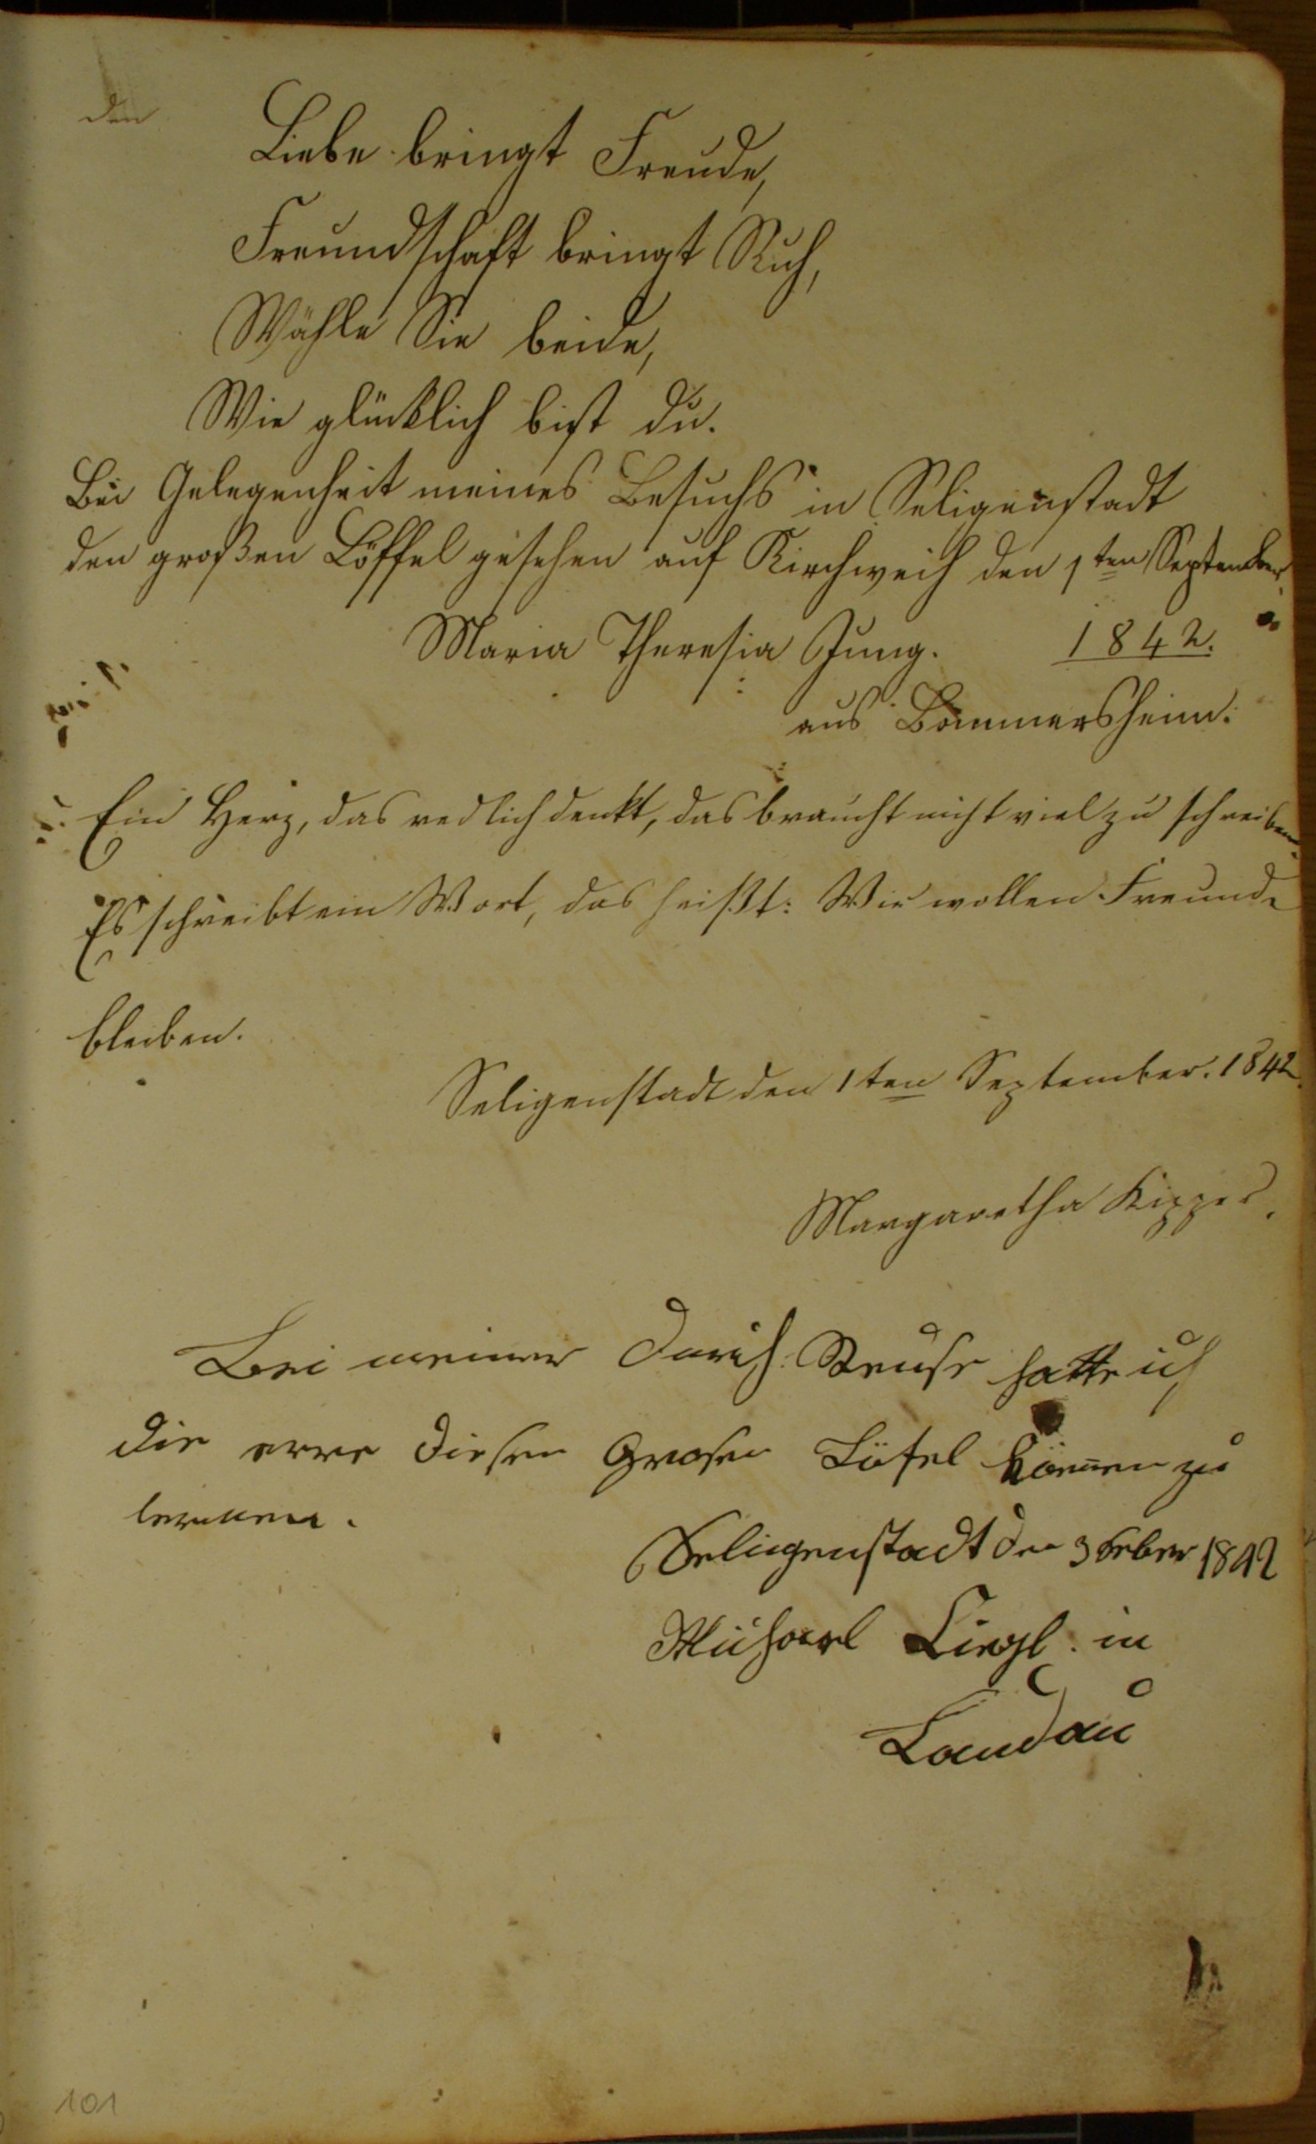 den
Liebe bringt Freude,
Freundschaft bringt Ruh,
Wähle Sie beide,
Wie glücklich bist du.
Bei Gelegenheit meines Besuchs in Seligenstadt
den großen Löffel gesehen auf Kirchweih den 1ten September
Maria Theresia Jung. 1842.
aus Bommersheim.
Ein Herz, das redlich denkt, das braucht nicht viel zu schreiben
Es schreibt ein Wort, das heißt: Wir wollen Freunde
bleiben.
Seligenstadt den 1ten September. 1842.
Margaretha Kipper.
Bei meiner durch Reuse hatte ich
die erre diesen Grosen Löfel können zu
lernnen.
Seligenstadt den 3 1842
Michael in
Landau
101